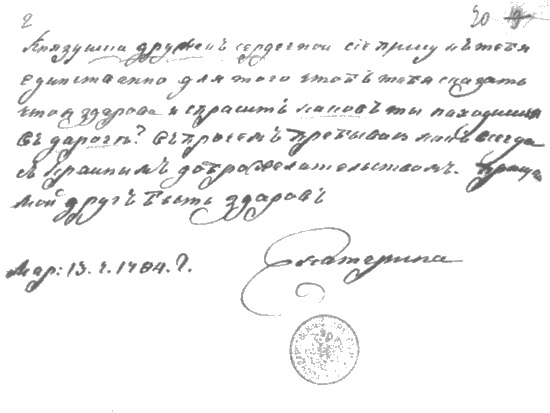 2 20
Князушка дружекъ сердечной сіе пишу къ тебя
единственно для того чтобъ тебя сказать
что я здарова и спрасить каковъ ты находишся
въ дароги? въпрочемъ пребываю какъ всегда
с крайнымъ доброжелательствомъ. прощай
мой другъ быть здаровъ
Мар: 13. ч. 1784. г.
Екатерина